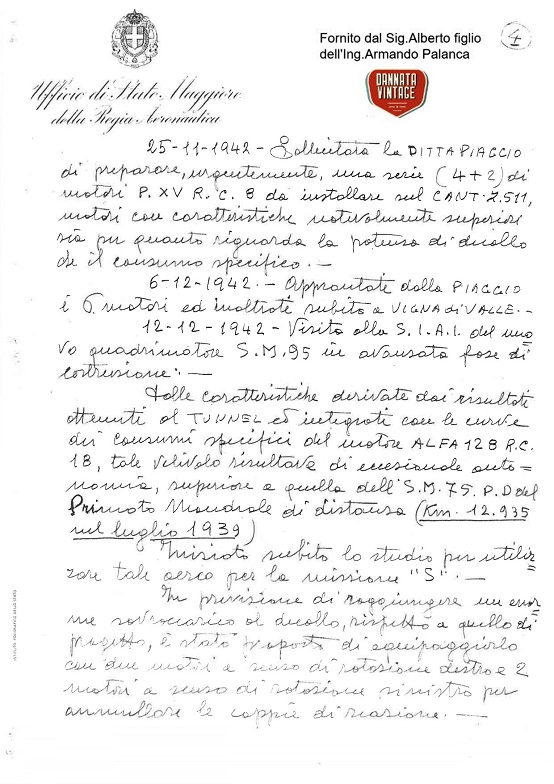 Fornito dal Sig.Alberto figlio
dell'Ing.Armando Palanca
4
DANNATA
VINTAGE
Ufficio di Stato Maggiore
della Regia Aeronautica
25-11-1942 - Sollecitata la DITTA PIAGGIO
di preparare, urgentemente, una serie (4+2) di
motori P. XV R.C. 8 da installare sul CANT-Z.511,
motori con caratteristiche notevolmente superiori
sia per quanto riguarda la potenza di decollo
che il consumo specifico. —
6-12-1942. - Approntate dalla PIAGGIO
i 6 motori ed inoltrate subito a VIGNA di VALLE. -
12-12-1942 - Visita alla S.I.A.I. del nuo
vo quadrimotore S.M.95 in avanzata fase di
costruzione. —
Dalle caratteristiche derivate dai risultati
ottenuti al TUNNEL ed integrati con le curve
dei consumi specifici del motore ALFA 128 R.C.
18, tale velivolo risultava di eccezionale auto=
nomia, superiore a quella dell'S.M.75. P.D del
Primato Mondiale di distanza (Km. 12.935
nel luglio 1939)
Iniziato subito lo studio per utiliz=
zare tale aereo per la missione "S". —
In previsione di raggiungere un enor=
me sovraccarico al decollo, rispetto a quello di
progetto, è stato proposto di equipaggiarlo
con due motori a senso di rotazione destro e 2
motori a senso di rotazione sinistro per
annullare le coppie di reazione. —